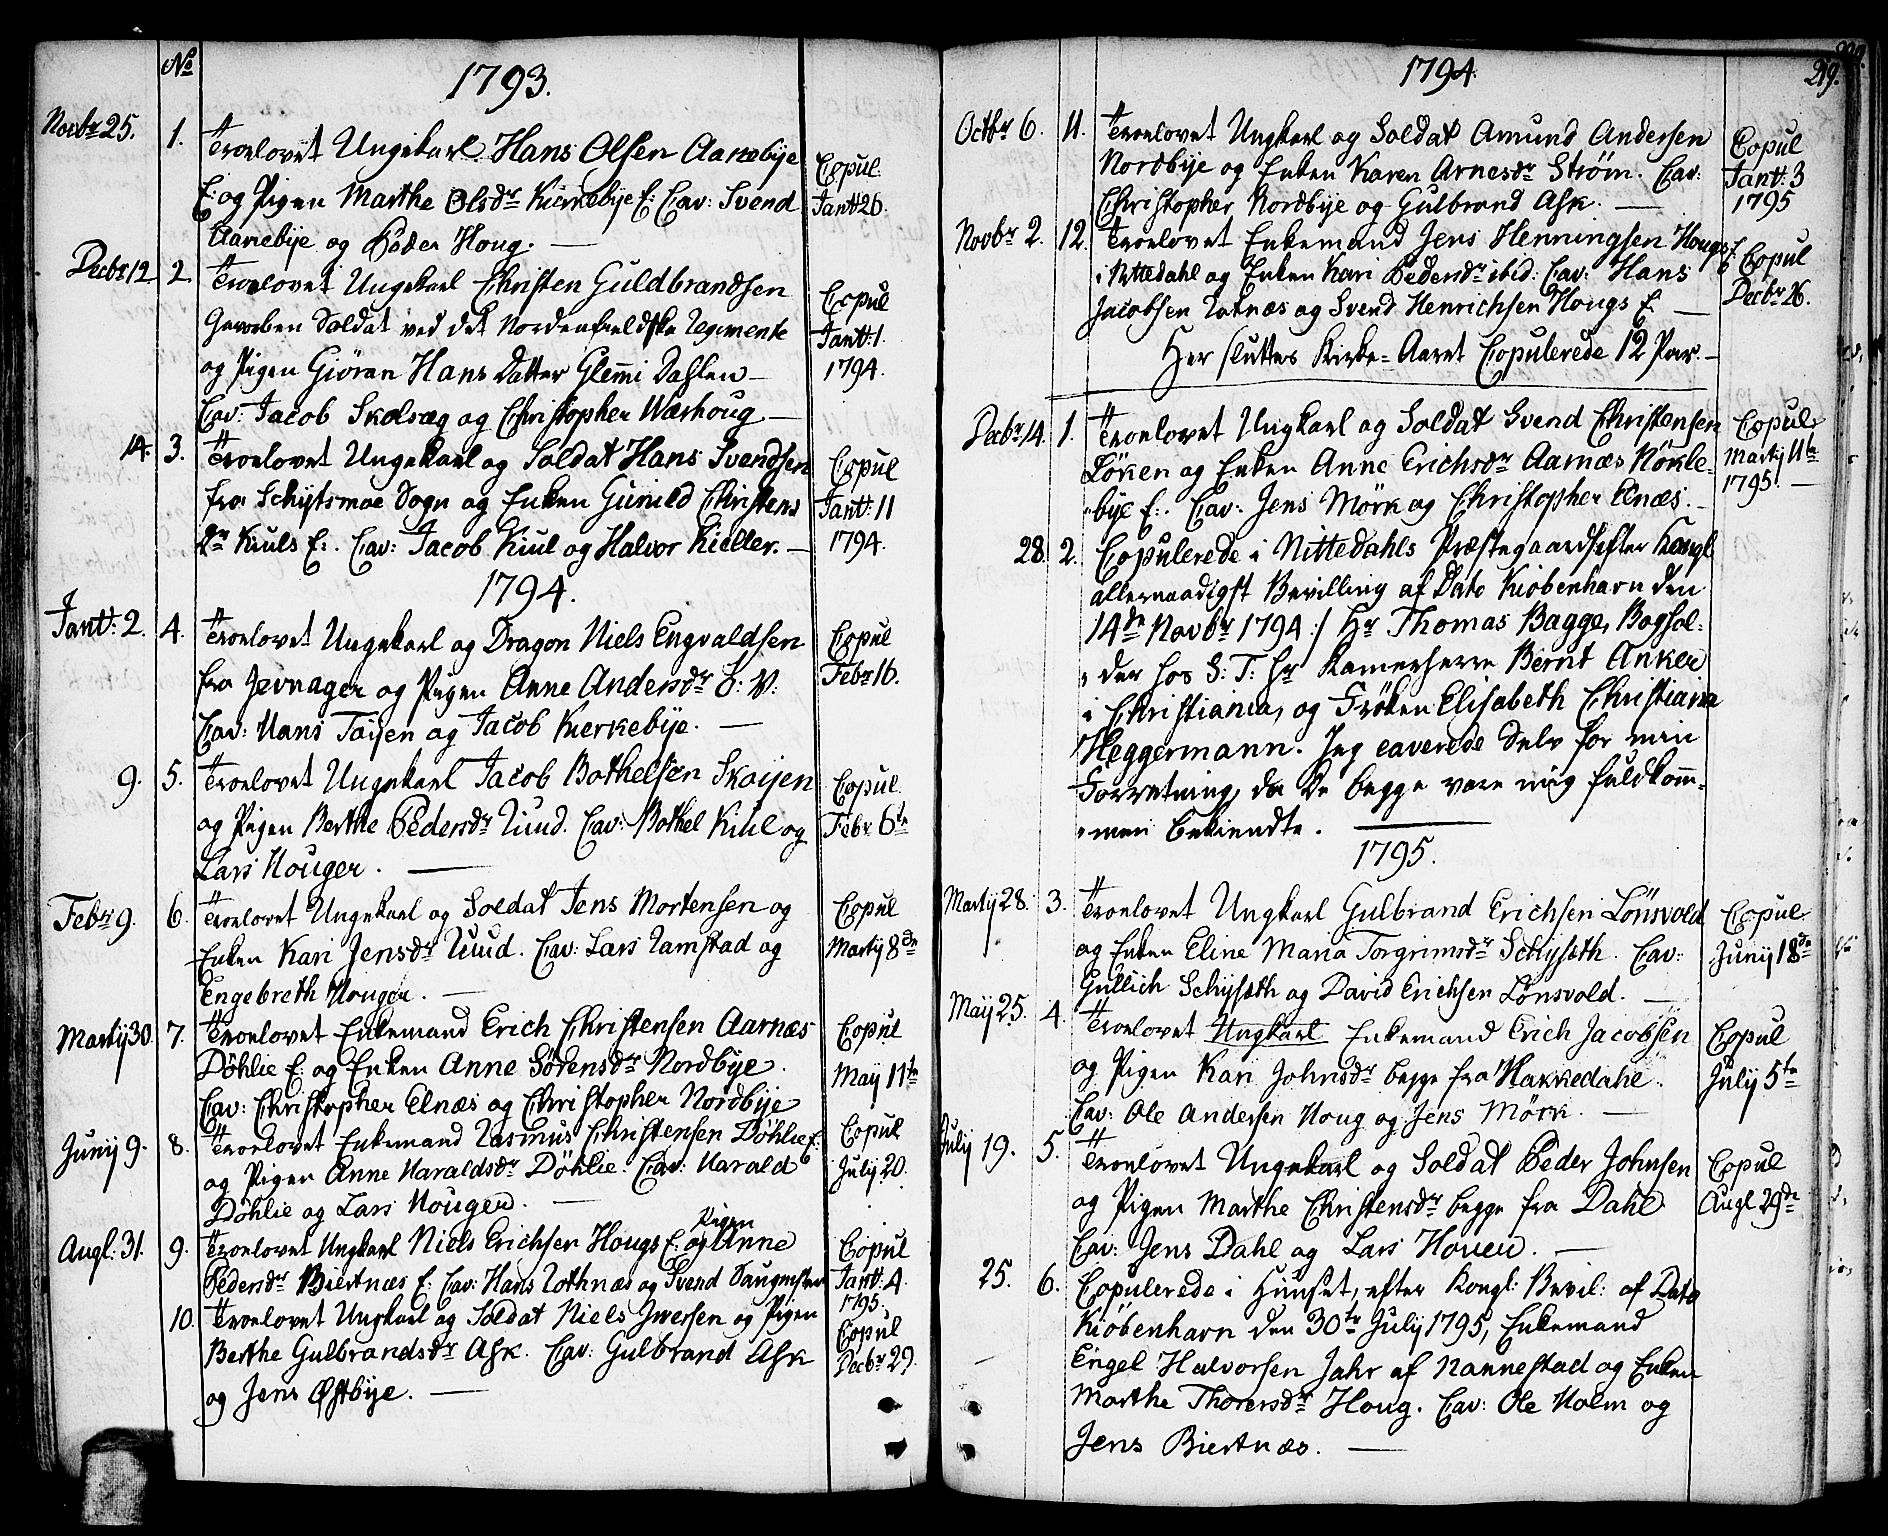 No
1793.
Novbr 25. 1. Troelovet Ungekarl Hans Olsen Aanebye
E: og Pigen Marthe Olsdr Kierkebye E: Cav: Svend
Aanebye og Peder Houg. —
Copul.
Janr: 26.
Decbr 12 2. Troelovet Ungekarl Christen Guldbrandsen
Gevorben Soldat ved det Nordenfieldske Regimente
og Pigen Giöran Hans Datter Glemi Dahlen —
Cav: Jacob Skolsæg og Christopher Wærhoug. —
Copul
Janr: 1.
1794.
14. 3. Troelovet Ungekarl og Soldat Hans Svendsen
fra Schytsmoe Sogn og Enken Gunild Christens
Dr Kiuls E:. Cav: Jacob Kiul og Halvor Kieller. —
Copul
Janr: 11
1794.
1794.
Janr: 2. 4. Troelovet Ungekarl og Dragon Niels Engvaldsen
fra Jevnager og Pigen Anne Andersdr S: V:
Cav: Hans Töijen og Jacob Kierkebye. —
Copul
Febr 16.
9. 5. Troelovet Ungekarl Jacob Bothelsen Skoijen
og Pigen Berthe Pedersdr Ruud. Cav: Bothel Kiul og
Lars Houger. —
Copul.
Febr 6te
Febr 9. 6. Troelovet Ungekarl og Soldat Jens Mortensen og
Enken Kari Jensdr Ruud. Cav: Lars Ramstad og
Engebreth Houger. —
Copul
Martij 8de
Martij 30. 7. Troelovet Enkemand Erich Christensen Aarnæs
Döhlie E: og Enken Anne Sörensdr Nordbye.
Cav: Christopher Elnæs og Christopher Nordbye
Copul
Maij 11te
Junij 9. 8. Troelovet Enkemand Rasmus Christensen Döhlie E:
og Pigen Anne Haraldsdr Döhlie. Cav: Harald
Döhlie og Lars Houger. —
Copul
Julij 20.
Augl: 31. 9. Troelovet Ungkarl Niels Erichsen Hougs E: og Pigen Anne
Pedersdr Biertnæs E: Cav: Hans Rothnæs og Svend
Copul
Janr: 4.
1795.
10. Troelovet Ungkarl og Soldat Niels Iversen og Pigen
Berthe Gulbrandsdr Ask. Cav: Gulbrand Ask
og Jens Østbye. —
Copul
Decbr 29.
1794
219.
Octbr 6. 11. Troelovet Ungkarl og Soldat Amund Andersen
Nordbye og Enken Karen Arnesdr Ström. Cav:
Christopher Nordbye og Gulbrand Ask. —
Copul
Janr: 3
1795
Novbr 2. 12. Troelovet Enkemand Jens Henningsen Hougs E
i Nittedahl og Enken Kari Pedersdr ibid: Cav: Hans
Jacobsen Rotnæs og Svend Henrichsen Hougs E. —
Copul
Decbr 26.
Her sluttes Kirke-Aaret Copulerede 12 Par. —
Decbr 14. 1. Troelovet Ungkarl og Soldat Svend Christensen
Löken og Enken Anne Erichsdr Aarnæs Nökle-
bye E:. Cav: Jens Mörk og Christopher Elnæs. —
Copul.
Martij 11te
1795. —
28. 2. Copulerede i Nittedahls Præstegaard efter Kongl
allernaadigst Bevilling af Dato Kiöbenhavn den
14de Novbr 1794 :/ Hr Thomas Bagge, Boghol-
der hos S: T: Hr Kamerherre Bernt Anker
i Christiania, og Fröken Elisabeth Christiana
Heggermann. Jeg caverede Selv for min
Forretning, da De begge vare mig fuldkom-
men bekiendte. —
1795.
Martij 28. 3. Troelovet Ungkarl Gulbrand Erichsen Lönsvold
og Enken Eline Maria Torgrimsdr Schysæth. Cav:
Gullich Schysæth og David Erichsen Lönsvold. —
Copul.
Junij 18de
Maij 25. 4. Troelovet Ungkarl Enkemand Erich Jacobsen
og Pigen Kari Johnsdr begge fra Hakkedahl.
Cav: Ole Andersen Houg og Jens Mörk. —
Copul
Julij 5te
Julij 19. 5. Troelovet Ungekarl og Soldat Peder Johnsen
og Pigen Marthe Christensdr begge fra Dahl
Cav: Jens Dahl og Lars Houen. —
Copul
Augl 29de
25. 6. Copulerede i Huuset, efter Kongl: Bevil: af Dato
Kiöbenhavn den 30te Julij 1795, Enkemand
Engel Halvorsen Jahr af Nannestad og Enken
Marthe Thorersdr Houg. Cav: Ole Holm og
Jens Biertnæs. —